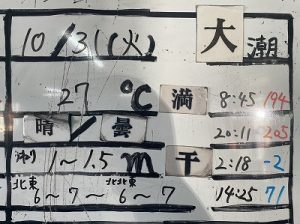 10/31(火) 大潮
27 ℃ 満 8:45 194
晴/曇 20:11 205
1〜1.5m 干 2:18 -2
北東 北北東 14:25 71
6〜7〜6〜7